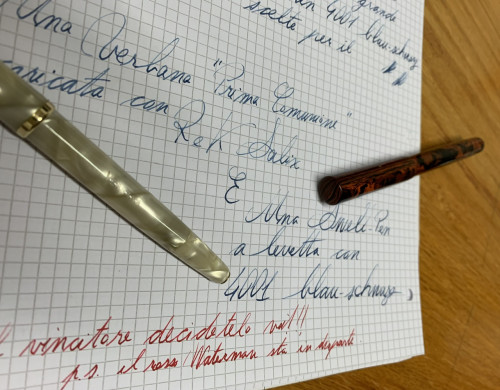 grande
un 4001 blau-schwarz
scelto per il
Una Verbana "Prima Comunione"
caricata con R&K Salix
E
Una Smili Pen
a levetta con
4001 blau-schwarz
vincitore decidetelo voi!!
p.s. il rosso Waterman sta in disparte